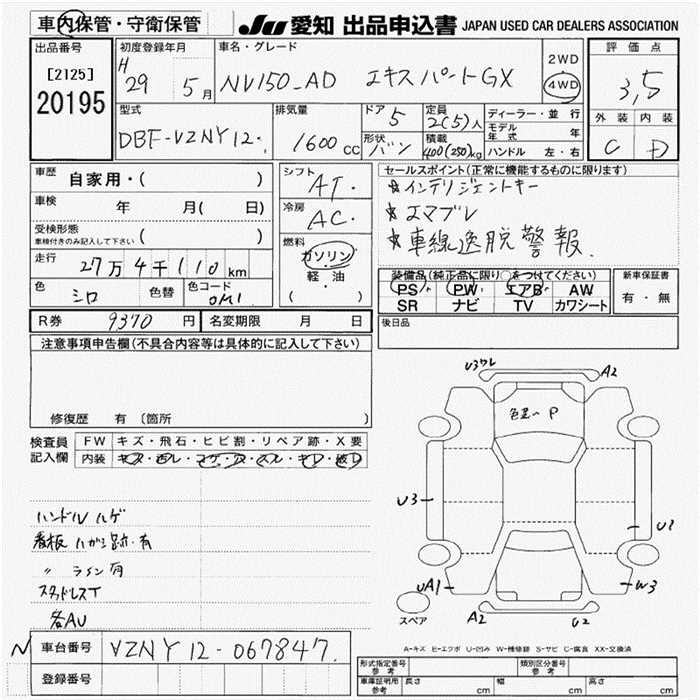 車内保管・守衛保管
JU 愛知 出品申込書 JAPAN USED CAR DEALERS ASSOCIATION
出品番号
[2125]
20195
初度登録年月
H 29 5 月
車名・グレード
NV150_AD エキスパートGX
2WD
4WD
評価点
3,5
外装 内装
C D
型式
DBF-VZNY12.
排気量
1600 cc
ドア 5
形状 バン
定員 2(5)人
積載 400(250)kg
ディーラー・並行
モデル年式 年
ハンドル 左・右
車歴
自家用・( )
車検
年 月( 日)
受検形態
車検付きのみ記入して下さい ( )
走行
27万4千110 km
色 シロ 色替 色コード
シフト
AT.
冷房
AC.
燃料
ガソリン
軽・油
( )
セールスポイント(正常に機能するものに限ります)
★インテリジェントキー
★エマブレ
★車線逸脱警報.
装備品(純正品に限り○をつけてください)
PS PW エアB AW
SR ナビ TV カワシート
新車保証書
有・無
R券 9370 円 名変期限 月 日
後日品
注意事項申告欄(不具合内容等は具体的に記入して下さい)
修復歴 有 〔箇所 〕
検査員記入欄
FW キズ・飛石・ヒビ割・リペア跡・X要
内装
ハンドルハゲ
看板ハガシ跡・有
〃 ライン有
スタッドレスT
各AU
U3ワレ A2
色黒い P
U3
U2
UA1 W3
A2 U2
スペア
A-キズ E-エクボ U-凹み W-補修跡 S-サビ C-腐食 XX-交換済
N 車台番号 VZNY12-067847.
登録番号
形式指定番号 参考
類別区分番号 参考
車庫証明用 参考 長さ cm 幅 cm 高さ cm